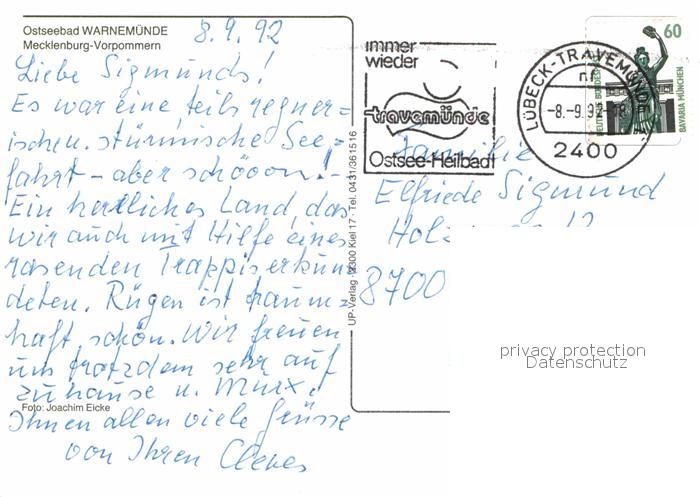 Ostseebad WARNEMÜNDE
Mecklenburg-Vorpommern
8.9.92
Liebe Sigmunds!
Es war eine teils regner=
ischen, stürmische See,=
fahrt - aber schöoon! -
Ein herrliches Land, das
wir auch mit Hilfe eines
rasenden Trappis erkun
deten. Rügen ist traum=
haft schön. Wir freuen
uns trotzdem sehr auf
zuhause u. Murx.
Foto: Joachim Eicke
Ihnen allen viele Grüsse
von Ihren Cleves
UP-Verlag · 2300 Kiel 17 · Tel. 0431/361516
immer
wieder
travemünde
Ostsee-Heilbad
LÜBECK-TRAVEMÜNDE
-8.-9.92-18
2400
60
DEUTSCHE BUNDESPOST
BAVARIA MÜNCHEN
Familie
Elfriede Sigmund
8700
privacy protection
Datenschutz